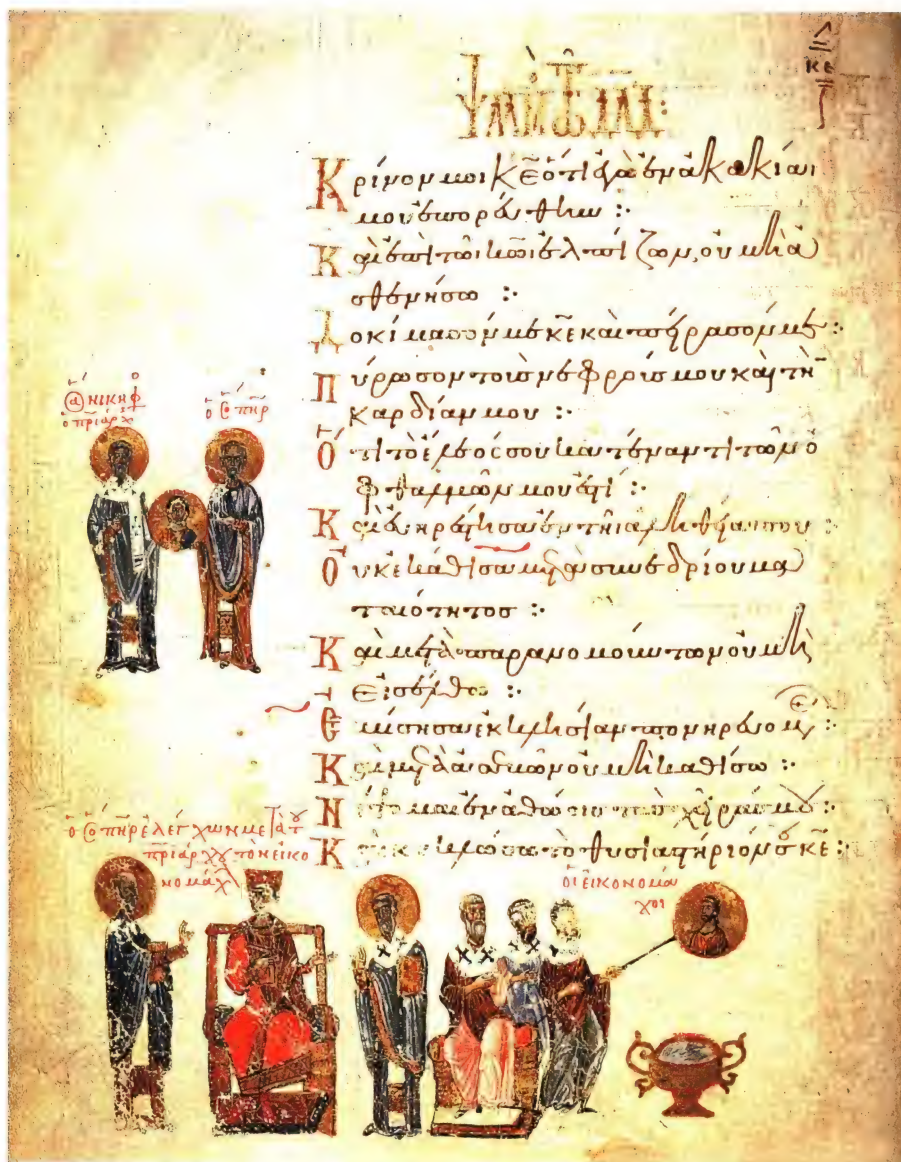 ΨΑΛΜὸς τῷ ΔΑΔ:
κε
Κρίνόν μοι κ̅ε̅ ὅτι ἐγὼ ἐν ἀκακίαι
μου ἐπορεύθην :·
Καὶ ἐπὶ τῶι κ̅ω̅ι ἐλπίζων, οὐ μὴ ἀ
σθενήσω :·
Δοκίμασόν με κ̅ε̅ καὶ πείρασόν με :·
Πύρωσον τοὺς νεφρούς μου καὶ τὴν
καρδίαν μου :·
Ὅτι τὸ ἔλεός σου κατέναντι τῶν ὀ
φθαλμῶν μου ἐστί :·
Καὶ εὐηρέστησα ἐν τῆι ἀληθείαι σου
Οὐκ ἐκάθισα μετὰ συνεδρίου μα
ταιότητος :·
Καὶ μετὰ παρανομούντων οὐ μὴ
εἰσέλθω :·
Ἐμίσησα ἐκκλησίαν πονηρευομέ
Καὶ μετὰ ἀσεβῶν οὐ μὴ καθίσω :·
Νίψομαι ἐν ἀθώοις τὰς χεῖράς μου :·
Καὶ κυκλώσω τὸ θυσιαστήριόν σου κ̅ε̅ :·
ὁ ἅ ΝΙΚΗΦ
ὁ π̅ρ̅ιάρχ
ὁ C̅ ΠΗΡ
ὁ C̅ ΠΗΡ ἐλέγχων μετὰ τ
π̅ρ̅ιάρχου τὸν εἰκο
νομάχ
οἱ εἰκονομά
χοι